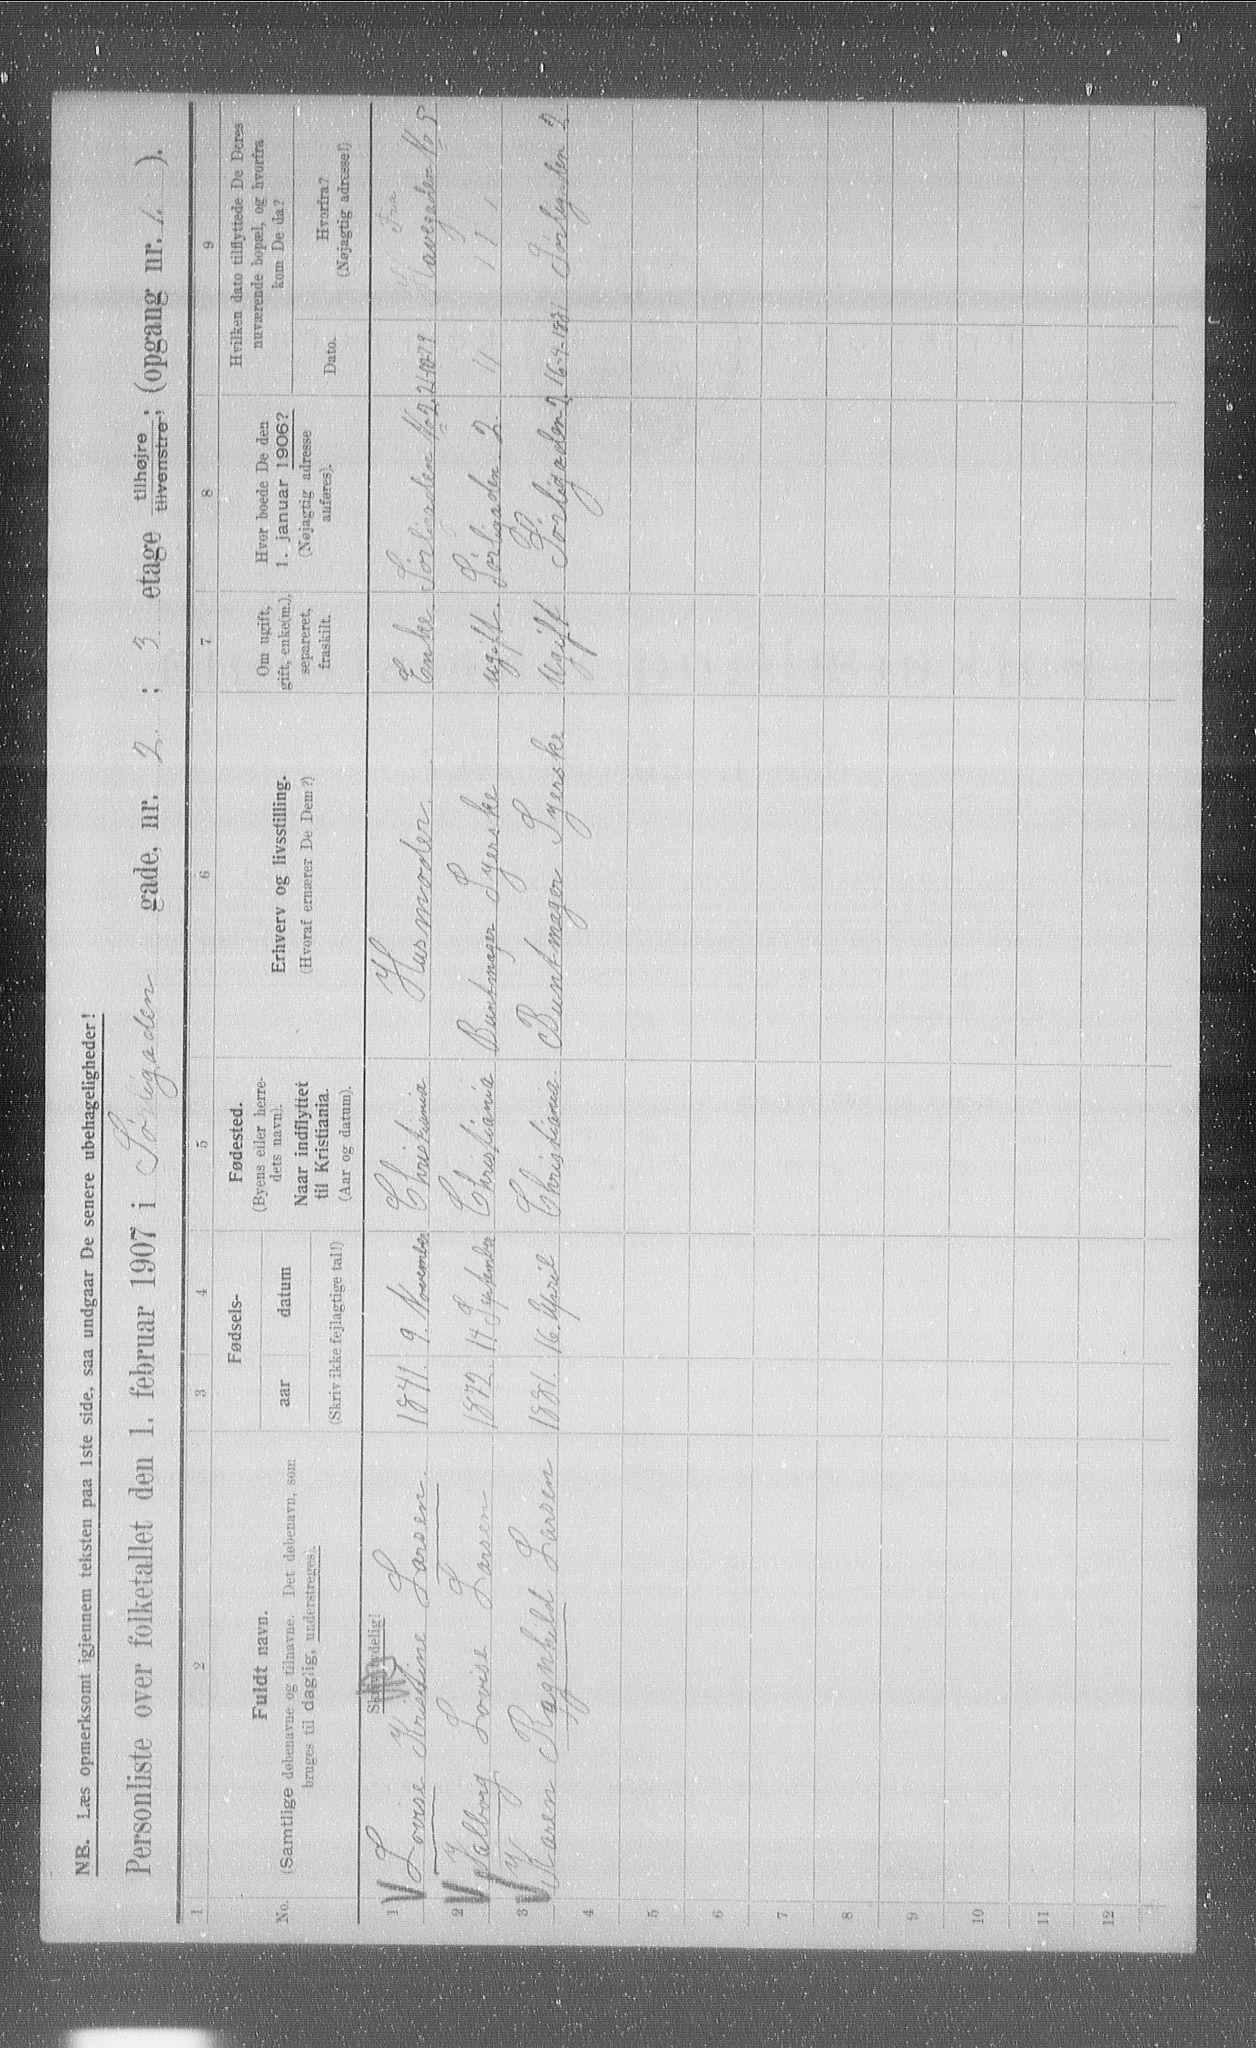 NB. Læs opmerksomt igjennem teksten paa 1ste side, saa undgaar De senere ubehageligheder!
Personliste over folketallet den 1. februar 1907 i Sörligaden gade, nr. 2 ; 3 etage tilhøjre tilvenstre; (opgang nr. 1. ).
1 2 3 4 5 6 7 8 9
No.
Fuldt navn.
(Samtlige døbenavne og tilnavne. Det døbenavn, som
bruges til daglig, understreges).
Fødsels-
aar datum
(Skriv ikke fejlagtige tal!)
Fødested.
(Byens eller herre-
dets navn).
Naar indflyttet
til Kristiania.
(Aar og datum).
Erhverv og livsstilling.
(Hvoraf ernærer De Dem?)
Om ugift,
gift, enke(m.),
separeret,
fraskilt.
Hvor boede De den
1. januar 1906?
(Nøjagtig adresse
anføres).
Hvilken dato tilflyttede De Deres
nuværende bopæl, og hvorfra
kom De da?
Dato.
Hvorfra?
(Nøjagtig adresse!)
Skriv tydelig!
Fra
1 Lovise Kristine Larsen. 1841. 9. November Christiania Husmoder. Enke Sörligaden No 2, 21-10-79 Havegaden No 5
2 Valborg Lovise Larsen 1872. 14 September Christiania Buntmager Syerske ugift. Sörligaden. 2. 11 1 8 1
3 Karen Ragnhild Larsen 1881. 16. April Christiania. Buntmager Syerske Ugift Sörligaden 2, 16-4-1881 Sörligaden 2
4
5
6
7
8
9
10
11
12